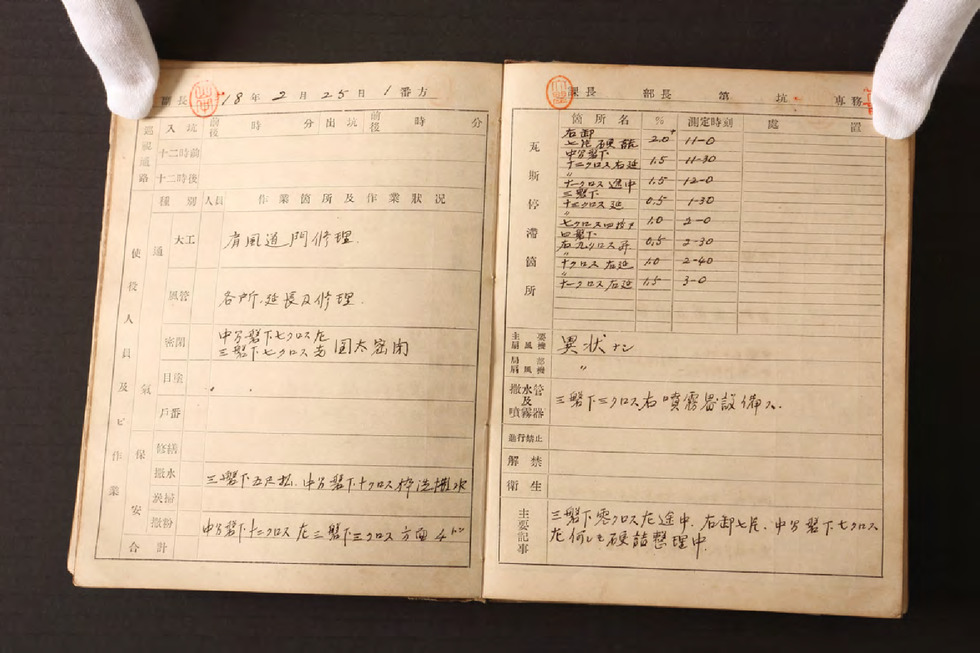 副長 18年2月25日1番方
巡視通路 入坑 前後 時 分 出坑 前後 時 分
十二時前
十二時後
使役人員及ビ作業
種別 人員 作業箇所及作業状況
通気
大工 肩風道門修理.
風管 各所、延長及修理.
密閉 中分盤下七クロス左
三盤下七クロス右 密閉
目塗
戸番
保安
修繕
撒水 三盤下五尺払、中分盤下十クロス枠洗撒水
炭掃
撒粉 中分盤下十二クロス左三盤下三クロス方面 4
合計
課長 部長 第 坑 専務
瓦斯停滞箇所
箇所名 % 測定時刻 処置
右卸
七尺硬詰 2.0 11-0
中分盤下
十二クロス右延 1.5 11-30
〃
十一クロス途中 1.5 12-0
三盤下
十三クロス延 0.5 1-30
〃
七クロス四段 1.0 2-0
四盤下
右九クロス昇 0.5 2-30
十クロス右延 1.0 2-40
十一クロス右延 1.5 3-0
主要扇風機 異状ナシ
局部扇風機 〃
撒水管及噴霧器 三盤下三クロス右噴霧器設備ス.
進行禁止
解禁
衛生
主要記事 三盤下零クロス左途中、右卸七尺、中分盤下七クロス
左何レモ硬詰整理中.